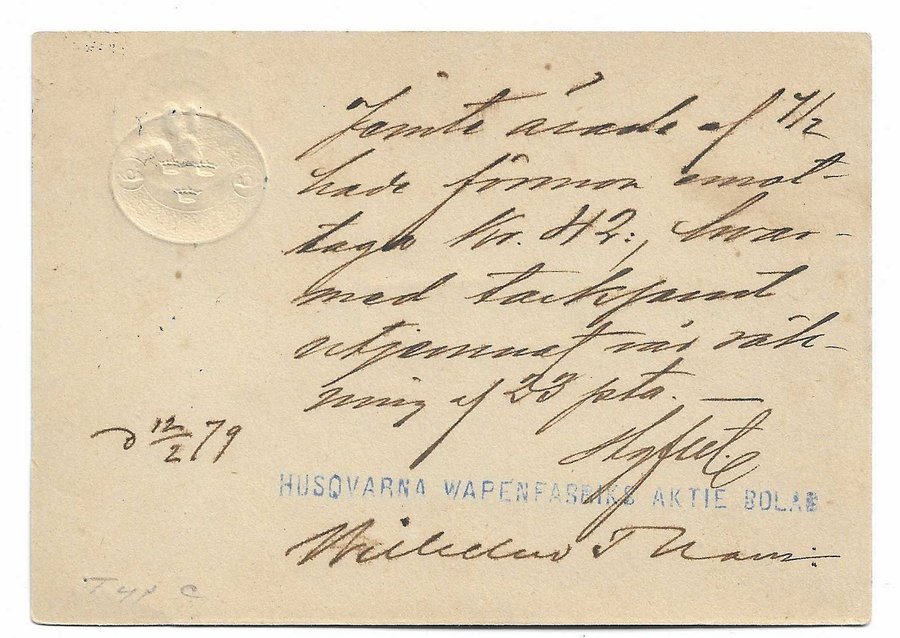 Jemte ärade af 7/2
hade förmon emot-
taga Kr. 42:, hvar-
med tacksamt
utjemnat vår räk-
ning af 23 pto. —
D 12/2 79
HUSQVARNA WAPENFABRIKS AKTIE BOLAG
Wilhelm Tham.
Typ C